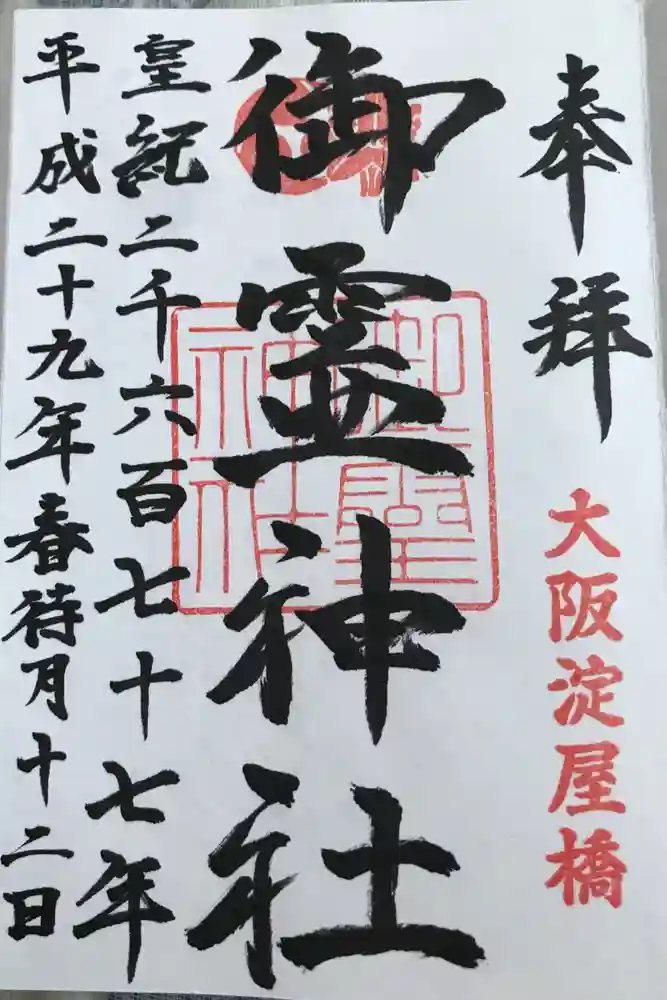 奉拝
大阪淀屋橋
御霊神社
皇紀二千六百七十七年
平成二十九年春待月十二日